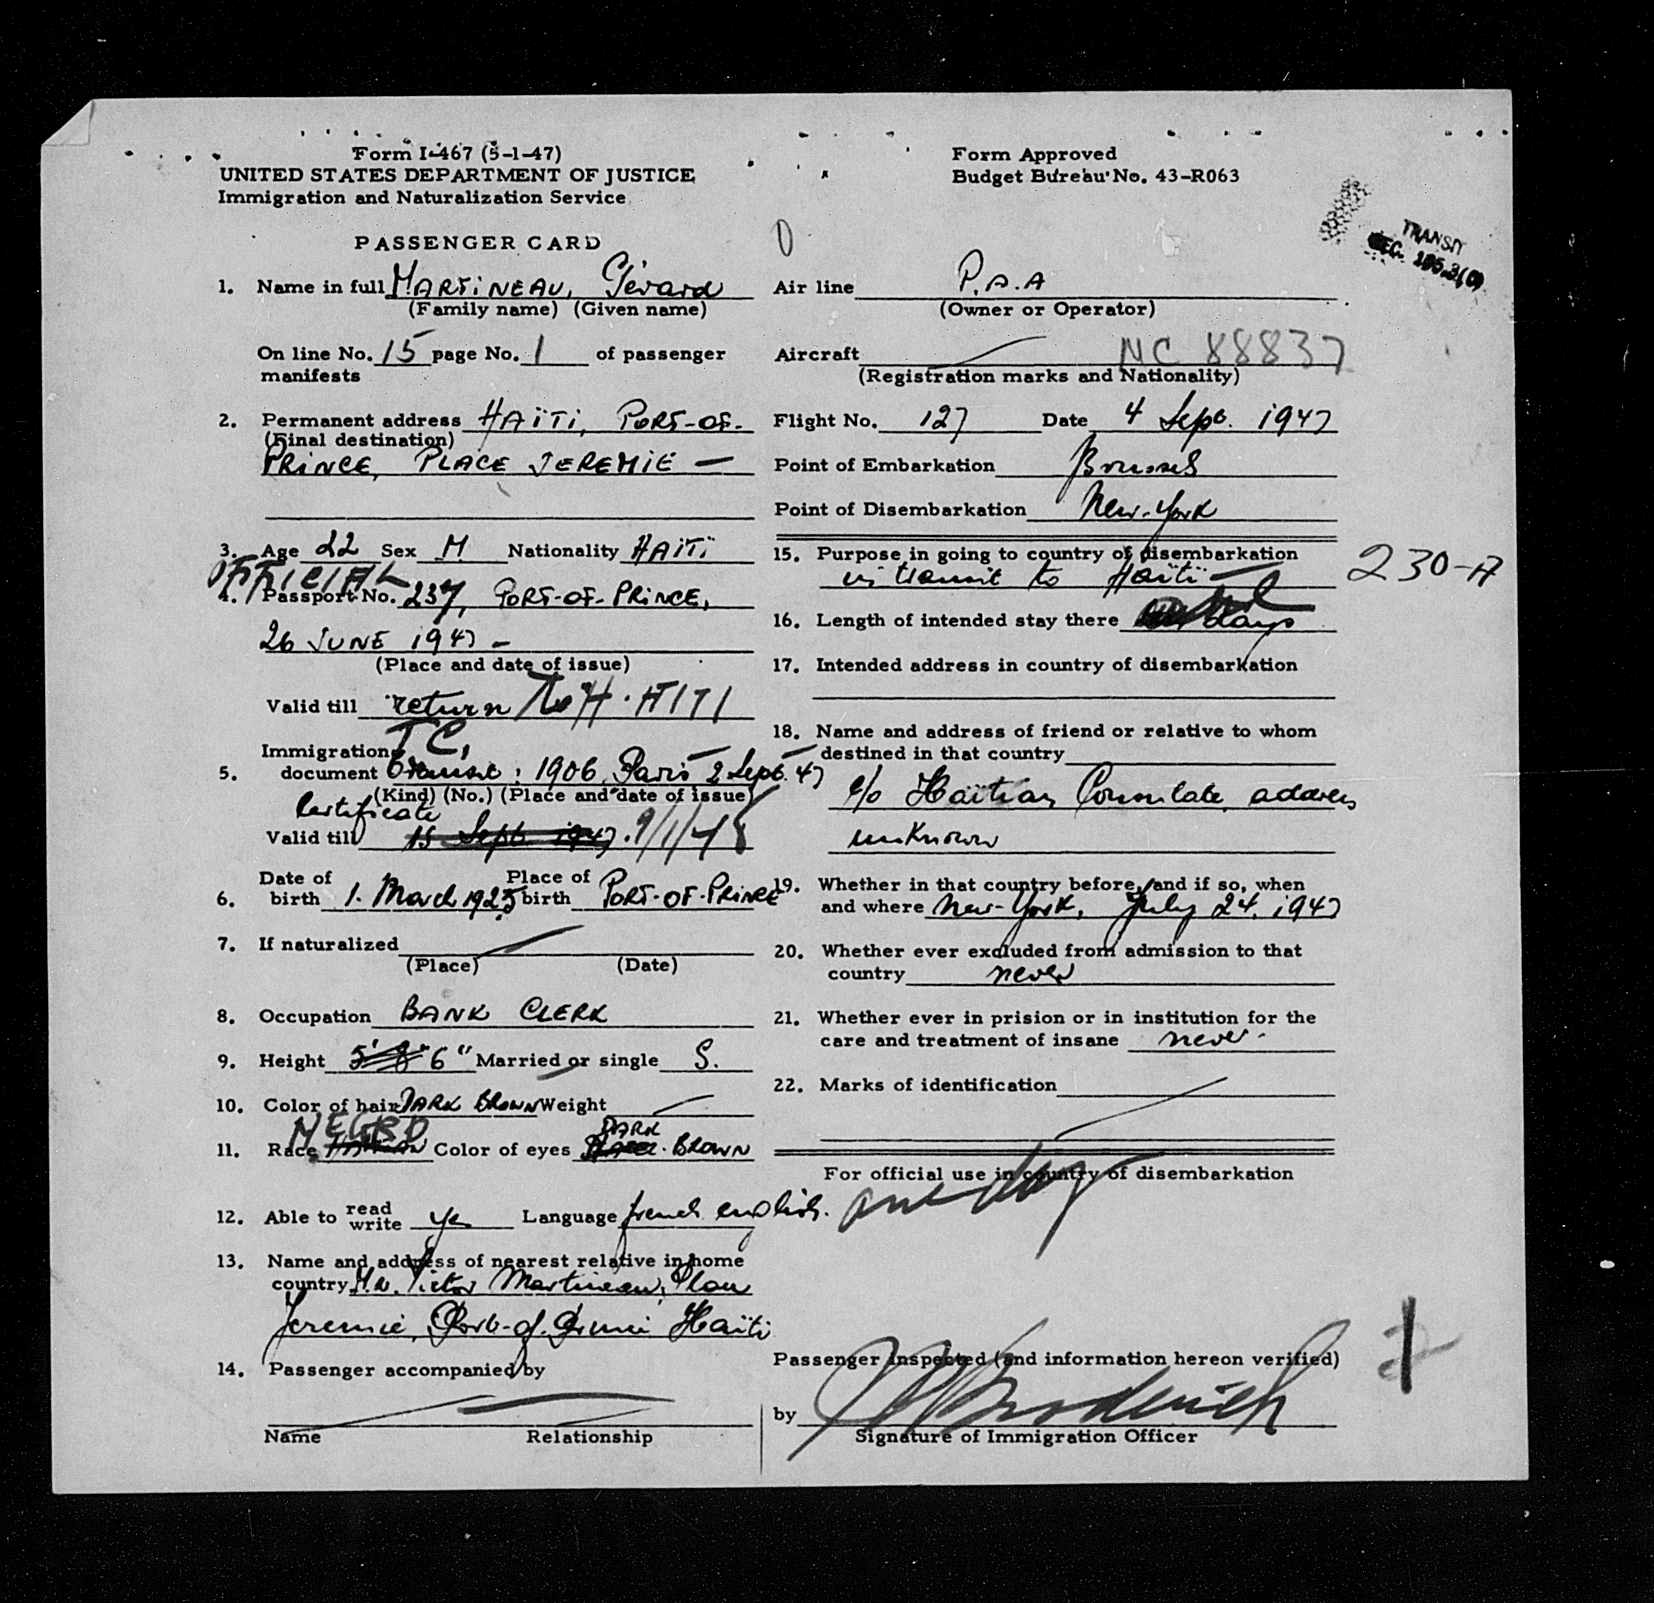 Form I-467 (5-1-47)
UNITED STATES DEPARTMENT OF JUSTICE
Immigration and Naturalization Service
PASSENGER CARD
1. Name in full MARTINEAU, Gérard
(Family name) (Given name)
On line No. 15 page No. 1 of passenger
manifests
2. Permanent address HAÏTI, PORT-OF-
(Final destination)
PRINCE, PLACE JEREMIE —
3. Age 22 Sex M. Nationality HAÏTI
OFFICIAL
4. Passport No. 237, PORT-OF-PRINCE,
26 JUNE 1947 -
(Place and date of issue)
Valid till return to HAITI
T C,
Immigration
5. document transit: 1906, Paris 2 Sept. 47
(Kind) (No.) (Place and date of issue)
Certificate
Valid till 15 Sept. 1947. 9/1/48
Date of Place of
6. birth 1. March 1925 birth PORT-OF-PRINCE
7. If naturalized
(Place) (Date)
8. Occupation BANK CLERK
9. Height 5' 8" 6" Married or single S.
10. Color of hair DARK BROWN Weight
NEGRO
DARK
11. Race Color of eyes BROWN
12. Able to read write yes Language french english.
13. Name and address of nearest relative in home
country Mr. Victor Martineau, Place
Jeremie, Port-of-Prince Haïti
14. Passenger accompanied by
Name Relationship
Form Approved
Budget Bureau No. 43-R063
TRANSIT
0
Air line P.A.A
(Owner or Operator)
Aircraft NC 88837
(Registration marks and Nationality)
Flight No. 127 Date 4 Sept. 1947
Point of Embarkation Brussels
Point of Disembarkation New-York
15. Purpose in going to country of disembarkation
in transit to Haïti
230-A
16. Length of intended stay there days
17. Intended address in country of disembarkation
18. Name and address of friend or relative to whom
destined in that country
c/o Haïtian Consulate, address
unknown
19. Whether in that country before, and if so, when
and where New-York, July 24, 1947
20. Whether ever excluded from admission to that
country never
21. Whether ever in prision or in institution for the
care and treatment of insane never.
22. Marks of identification
For official use in country of disembarkation
one day
Passenger inspected (and information hereon verified)
by Broderick
Signature of Immigration Officer